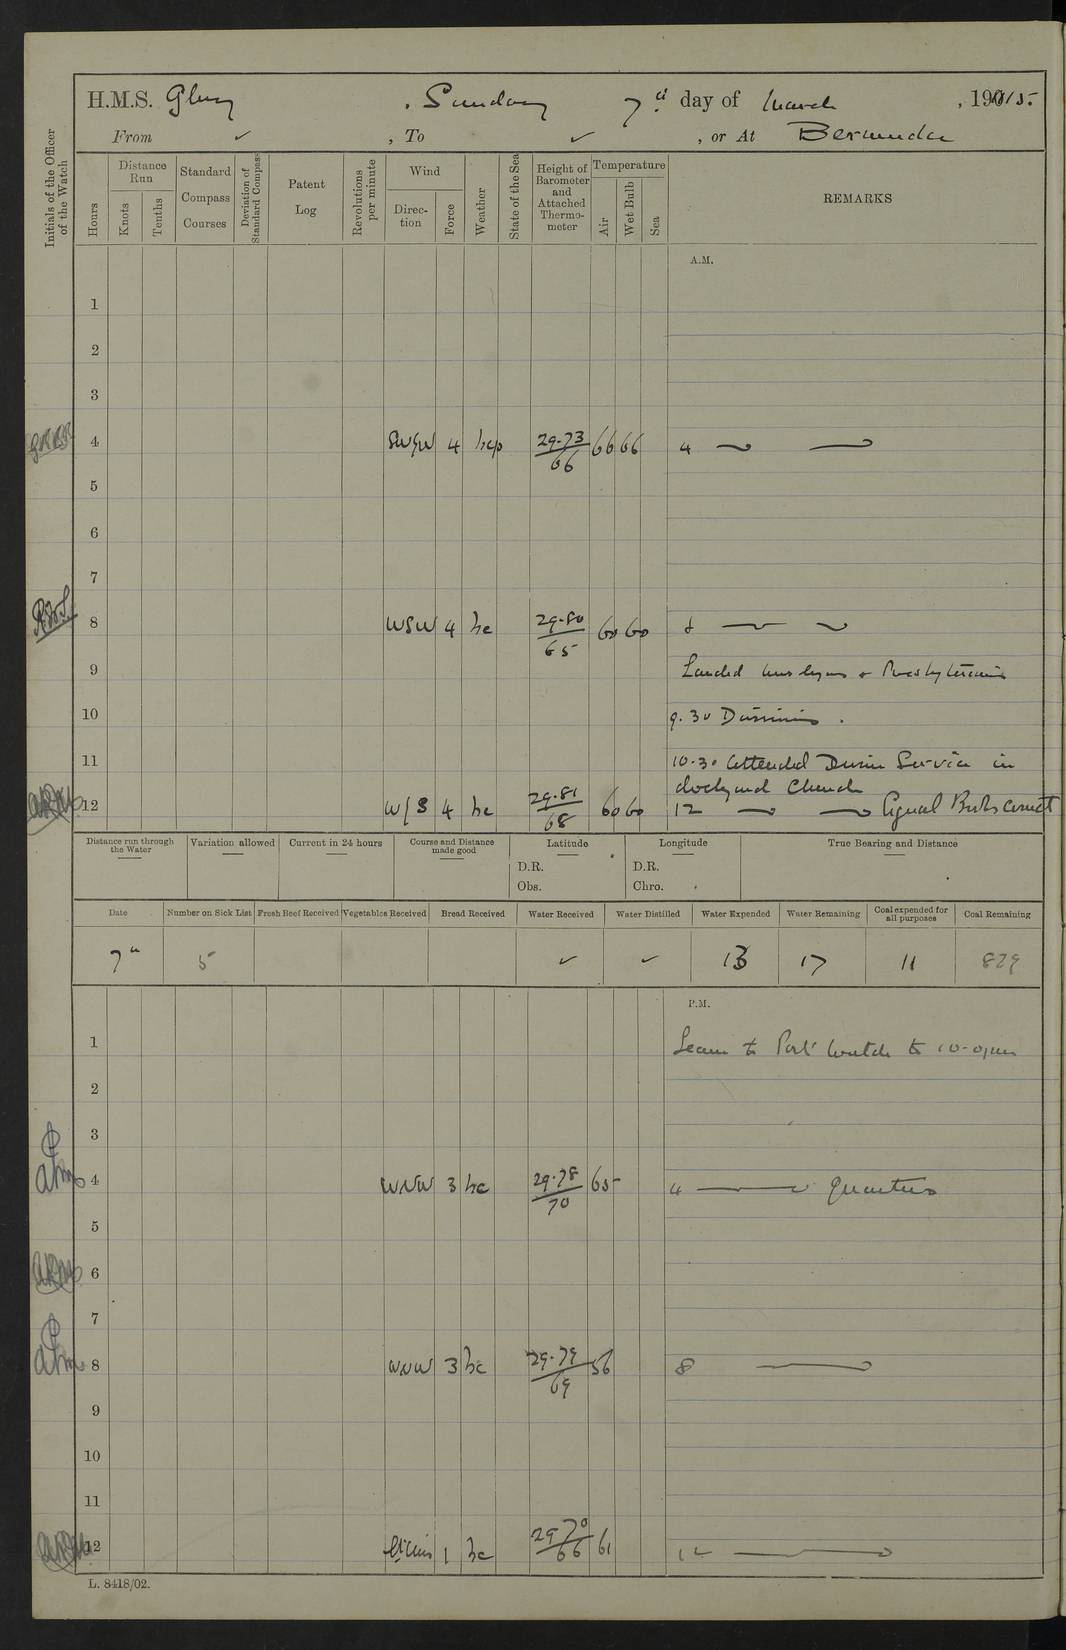 H.M.S. Glory, Sunday 7th day of March, 1915.
From ✓, To ✓, or At Bermuda
Initials of the Officer of the Watch
Hours
Distance Run
Knots
Tenths
Standard Compass Courses
Deviation of Standard Compass
Patent Log
Revolutions per minute
Wind
Direction
Force
Weather
State of the Sea
Height of Barometer and Attached Thermometer
Temperature
Air
Wet Bulb
Sea
REMARKS
A.M.
1
2
3
4 4 bcp 29.73/66 66 66 4
5
6
7
8 WSW 4 bc 29.80/65 60 60 8
9 Landed Wesleyans & Presbyterians
10 9.30 Divisions.
11 10.30 Attended Divine Service in
Dockyard Church
12 W/S 4 bc 29.81/68 60 60 12 Signal Books Correct
Distance run through the Water
Variation allowed
Current in 24 hours
Course and Distance made good
Latitude
D.R.
Obs.
Longitude
D.R.
Chro.
True Bearing and Distance
Date Number on Sick List Fresh Beef Received Vegetables Received Bread Received Water Received Water Distilled Water Expended Water Remaining Coal expended for all purposes Coal Remaining
7th 5 ✓ ✓ 13 17 11 829
P.M.
1 Leave to Port Watch to 10.0 pm
2
3
4 WNW 3 bc 29.78/70 65 4 Quarters
5
6
7
8 WNW 3 bc 29.79/69 56 8
9
10
11
12 1 bc 29.70/66 61 12
L. 8418/02.